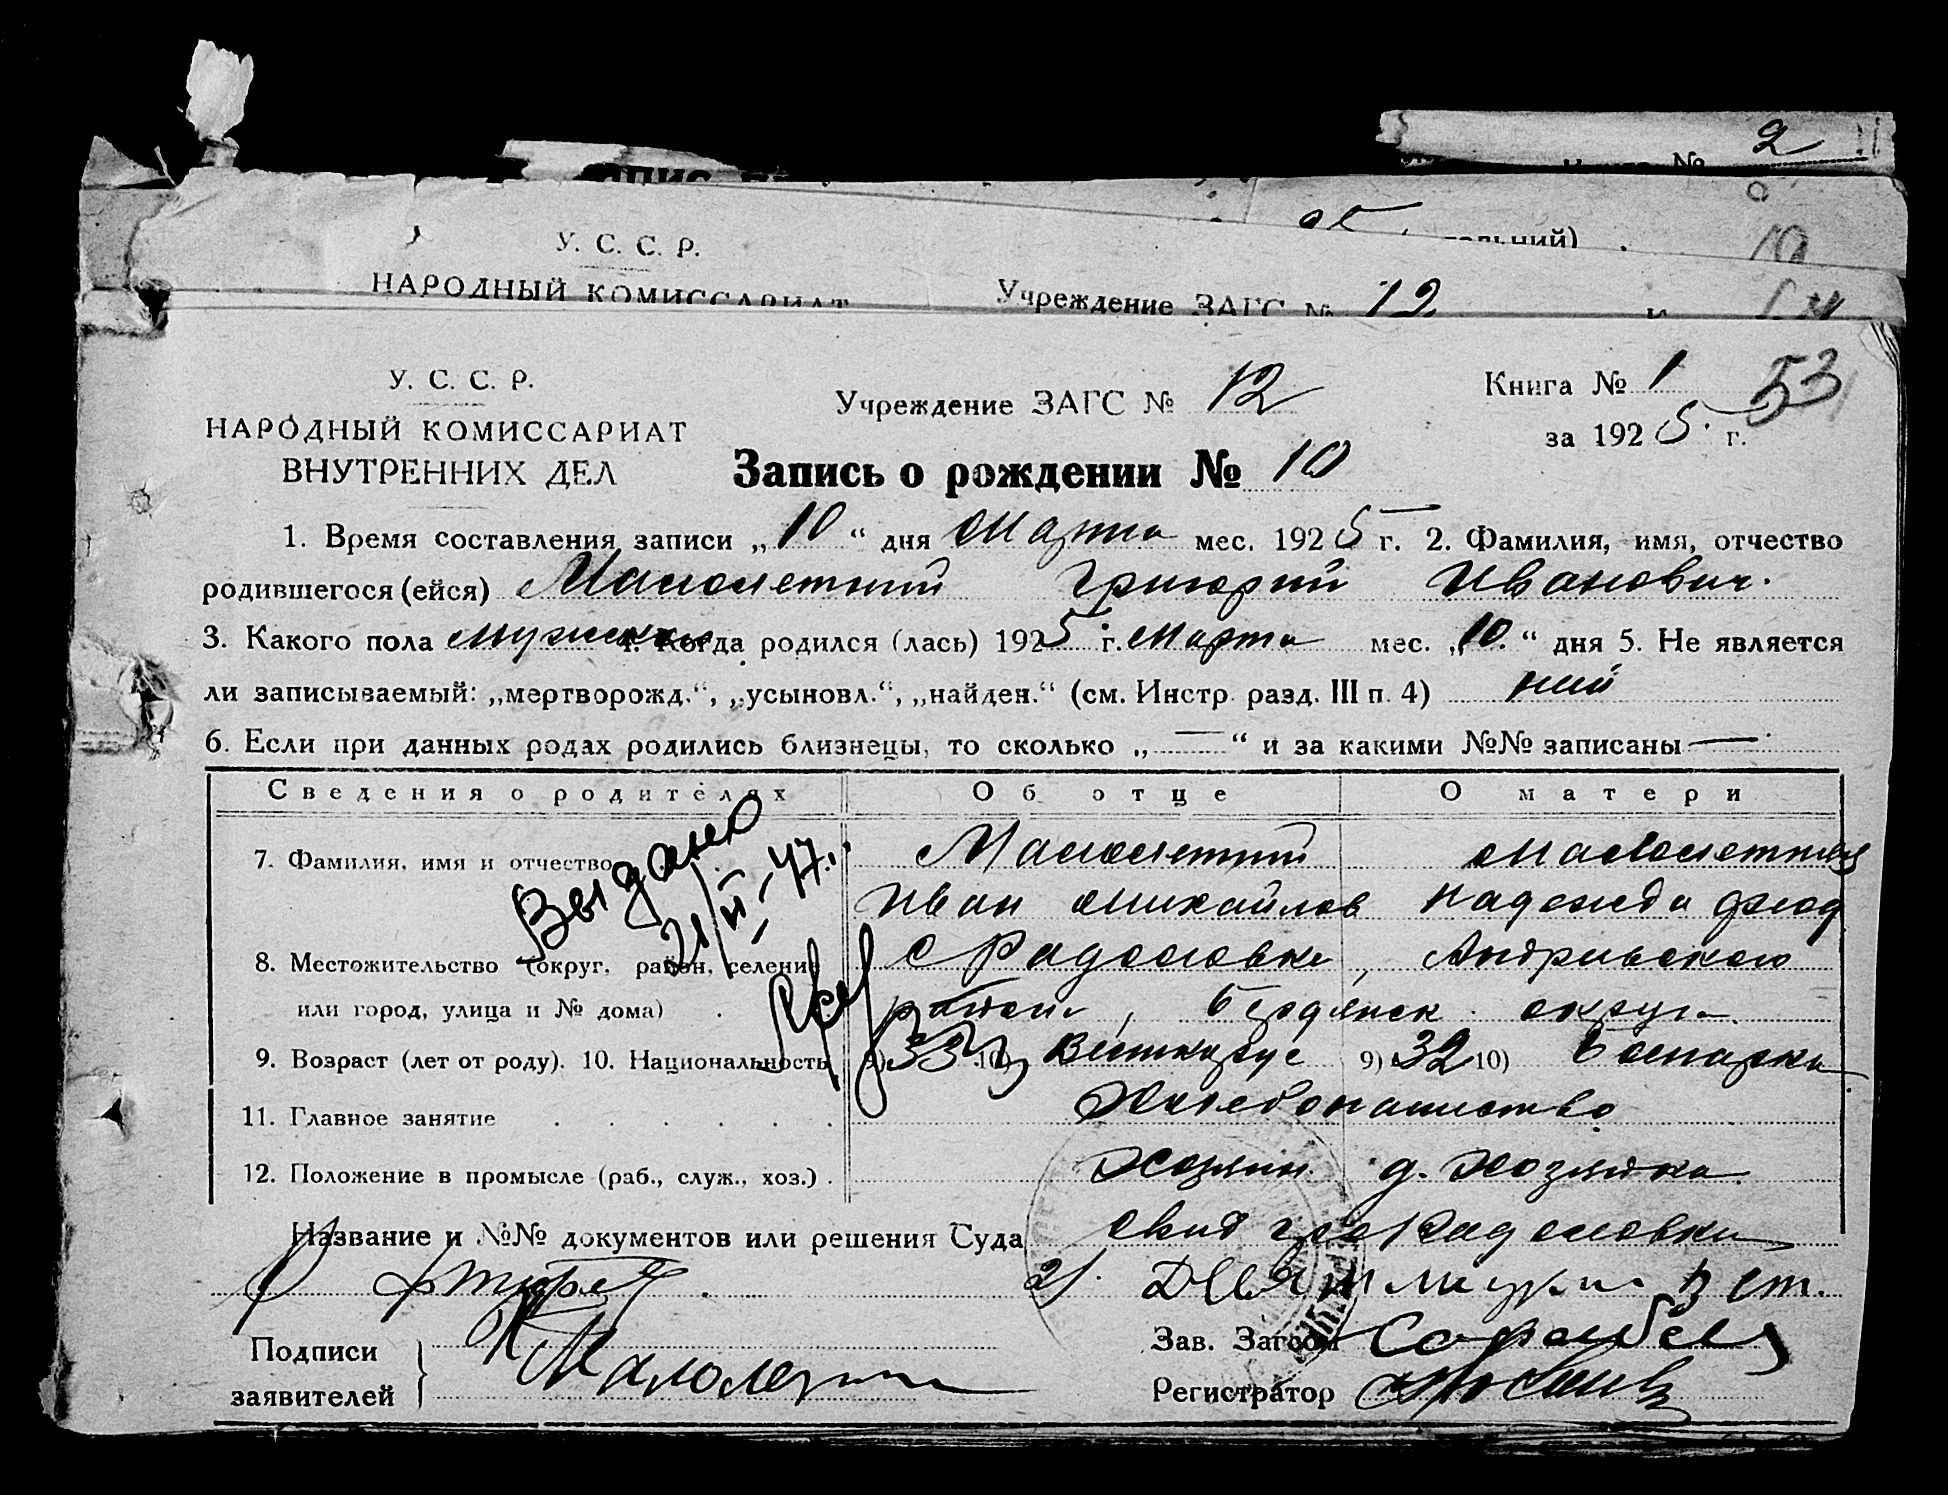 2
У. С. С. Р.
НАРОДНЫЙ КОМИССАРИАТ
Учреждение ЗАГС № 12
У. С. С. Р.
НАРОДНЫЙ КОМИССАРИАТ
ВНУТРЕННИХ ДЕЛ
Учреждение ЗАГС № 12
Книга № 1 53
за 1925 г.
Запись о рождении № 10
1. Время составления записи „10“ дня Марта мес. 1925 г. 2. Фамилия, имя, отчество
родившегося (ейся) Малолетний Григорий Иванович.
3. Какого пола мужск 4. Когда родился (лась) 1925 г. Марта мес. „10.“ дня 5. Не является
ли записываемый: „мертворожд.“, „усыновл.“, „найден.“ (см. Инстр. разд. III п. 4)
6. Если при данных родах родились близнецы, то сколько „—“ и за какими №№ записаны —
Сведения о родителях Об отце О матери
7. Фамилия, имя и отчество Малолетний Малолетняя
Иван Михайлов Надежда
Выдано
21/II-47.
8. Местожительство (округ, район, селение с Радоловка, Андривского
или город, улица и № дома) район, Бердянск округа
9. Возраст (лет от роду). 10. Национальность 9) 33 10) 9) 32 10) Болгарка
11. Главное занятие Хлебопашество
12. Положение в промысле (раб., служ., хоз.) Хозяин д. Хозяйка
Название и №№ документов или решения Суда Радоловки
21.
Подписи
заявителей
Малолетни
Зав. Загсом
Регистратор